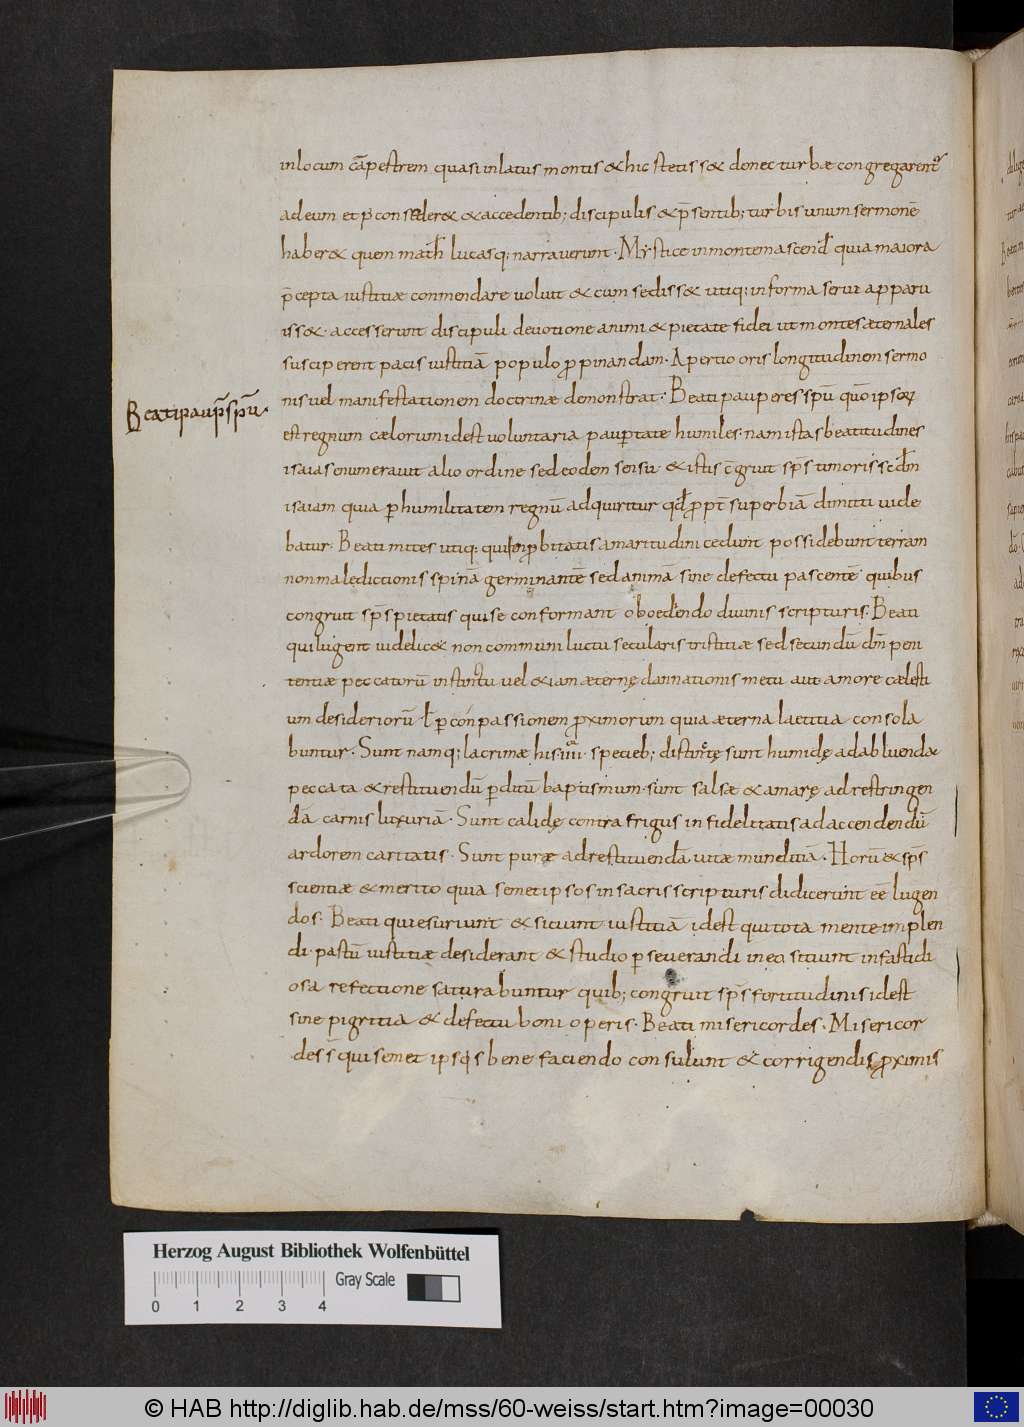 in locum cāpestrem quasi in latus montis & hic stetiss& donec turbae congregarent̃
ad eum et p̄ conseder& & accedentib; discipulis & p̄sentib; turbis unum sermonē
haber& quem math̄ lucasq; narraverunt. Mystice in montem ascend̄ quia maiora
p̄cepta iustitiae conmendare voluit & cum sediss& utiq; in forma servi apparu
iss&. accesserunt discipuli devotione animi & pietate fidei ut montes aeternales
susciperent pacis iustitiā populo ꝓpinandam. Apertio oris longitudinem sermo
nis vel manifestationem doctrinae demonstrat. Beati pauperes spū quō ipsoꝝ
Beati paup̄ spū.
est regnum caelorum id est voluntaria pauꝑtate humiles. nam istas beatitudines
isaias enumeravit alio ordine sed eodem sensu & istis c̄gruit sp̄s timoris scdm̄
isaiam quia ꝑ humilitatem regnū adquiritur qđ ꝓpt̄ superbiā dimitti vide
batur. Beati mites utiq; qui inꝓbitatis amaritudini cedunt possidebunt terram
non maledictionis spinā germinantē sed animā sine defectu pascentē quibus
congruit sp̄s pietatis qui se conformant oboediendo divinis scripturis. Beati
qui lugent videlic& non communi luctu secularis tristitiae sed secundū dn̄m peni
tentiae peccatorū instinctu vel &iam aeternę dannationis metu aut amore caelesti
um desideriorū ł ꝑ conpassionem ꝓximorum quia aeterna laetitia consola
buntur. Sunt namq; lacrimae his .iiii. specieb; distinctę sunt humidę ad abluenda
peccata & restituendū ꝑditū baptismum. sunt salsae & amarę ad restringen
dā carnis luxuriā. Sunt calidę contra frigus infidelitatis ad accendendū
ardorem caritatis. Sunt purae ad restituendā vitae munditiā. Horū & sp̄s
scientiae & merito quia semet ipsos in sacris scripturis didicerunt eē lugen
dos. Beati qui esuriunt & sitiunt iustitiā id est qui tota mente implen
di pastū iustitiae desiderant & studio ꝑseverandi in eo sitiunt infastidi
osa refectione saturabuntur quib; congruit sp̄s fortitudinis id est
sine pigritia & defectu boni operis. Beati misericordes. Misericor
des s̄ qui semet ipsos bene faciendo consulunt & corrigendis ꝓximis
Herzog August Bibliothek Wolfenbüttel
Gray Scale
0 1 2 3 4
© HAB http://diglib.hab.de/mss/60-weiss/start.htm?image=00030